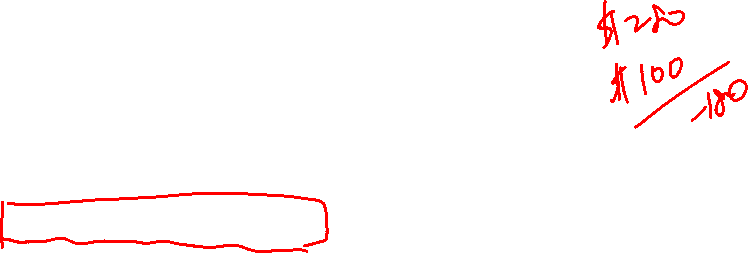 $280
$100
-180